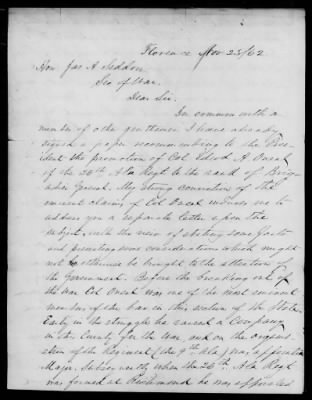 Florence Nov 25/62
Hon. Jas A Seddon
Sec of War.
Dear Sir.
In common with a
number of other gentlemen I have already
signed a paper recommending to the Presi-
dent the promotion of Col Edwd A. Oneal
of the 26th Ala Regt to the rank of Briga-
dier General. My strong conviction of the
eminent claims of Col Oneal induces me to
address you a separate letter upon the
subject, with the view of stating some facts
and presenting some considerations which might
not otherwise be brought to the attention of
the Government. Before the breaking out of
the War Col Oneal was one of the most eminent
members of the bar in this section of the State.
Early in the struggle he raised a Company
in this County for the war, and on the organi-
zation of the Regiment (the 9th Ala) was appointed
Major. Subsequently when the 26th Ala Regt
was formed at Richmond he was appointed